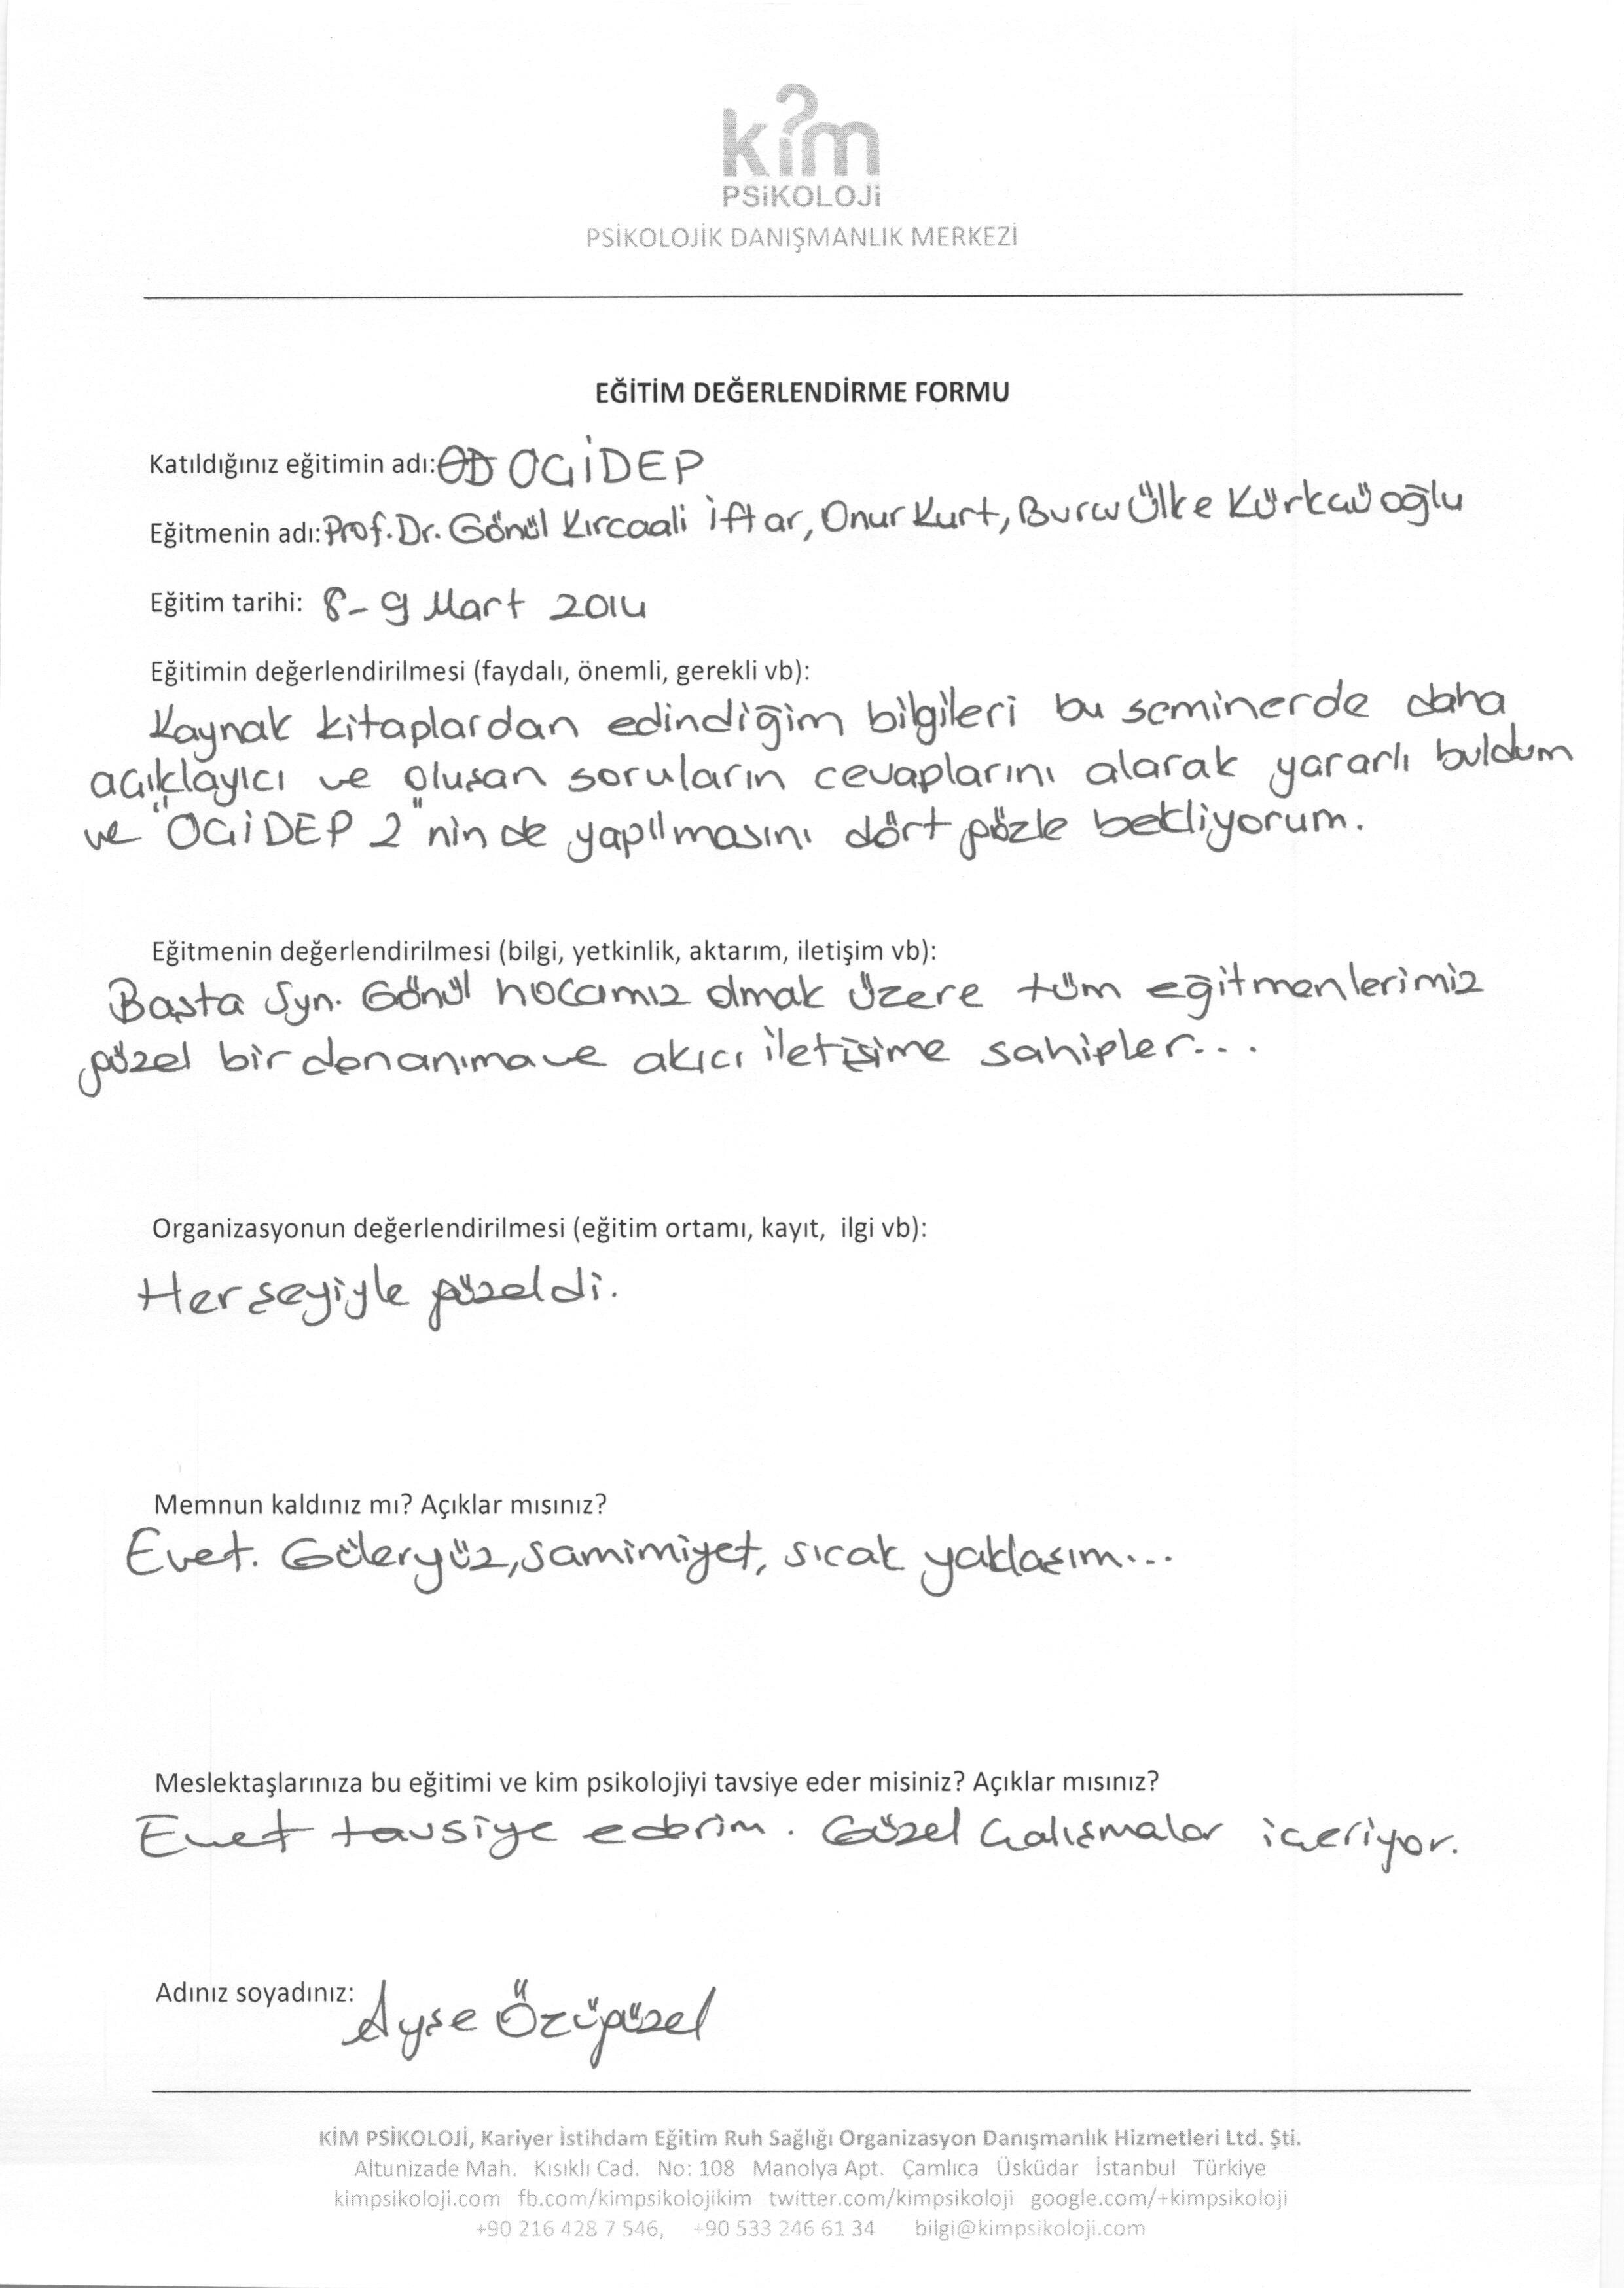 kim
PSiKOLOJi
PSİKOLOJİK DANIŞMANLIK MERKEZİ
EĞİTİM DEĞERLENDİRME FORMU
Katıldığınız eğitimin adı: OGİDEP
Eğitmenin adı: Prof. Dr. Gönül Kırcaali İftar, Onur Kurt, Burcu Ülke Kürkcüoğlu
Eğitim tarihi: 8-9 Mart 2014
Eğitimin değerlendirilmesi (faydalı, önemli, gerekli vb):
Kaynak kitaplardan edindiğim bilgileri bu seminerde daha
açıklayıcı ve oluşan soruların cevaplarını alarak yararlı buldum
ve "OGİDEP 2" nin de yapılmasını dört gözle bekliyorum.
Eğitmenin değerlendirilmesi (bilgi, yetkinlik, aktarım, iletişim vb):
Başta Syn. Gönül hocamız olmak üzere tüm eğitmenlerimiz
güzel bir donanıma ve akıcı iletişime sahipler...
Organizasyonun değerlendirilmesi (eğitim ortamı, kayıt, ilgi vb):
Herşeyiyle güzeldi.
Memnun kaldınız mı? Açıklar mısınız?
Evet. Güleryüz, samimiyet, sıcak yaklaşım...
Meslektaşlarınıza bu eğitimi ve kim psikolojiyi tavsiye eder misiniz? Açıklar mısınız?
Evet tavsiye ederim. Güzel çalışmalar içeriyor.
Adınız soyadınız: Ayşe Özügüzel
KİM PSİKOLOJİ, Kariyer İstihdam Eğitim Ruh Sağlığı Organizasyon Danışmanlık Hizmetleri Ltd. Şti.
Altunizade Mah. Kısıklı Cad. No: 108 Manolya Apt. Çamlıca Üsküdar İstanbul Türkiye
kimpsikoloji.com fb.com/kimpsikolojikim twitter.com/kimpsikoloji google.com/+kimpsikoloji
+90 216 428 7 546, +90 533 246 61 34 bilgi@kimpsikoloji.com